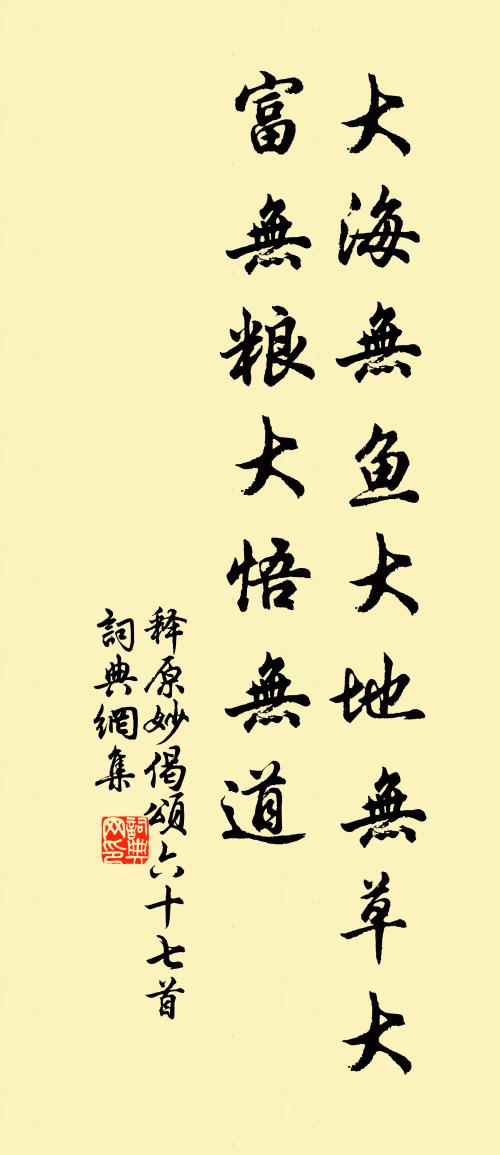 大海無鱼大地無草大
富無粮大悟無道
释原妙偈頌六十七首
詞典網集
詞典网印